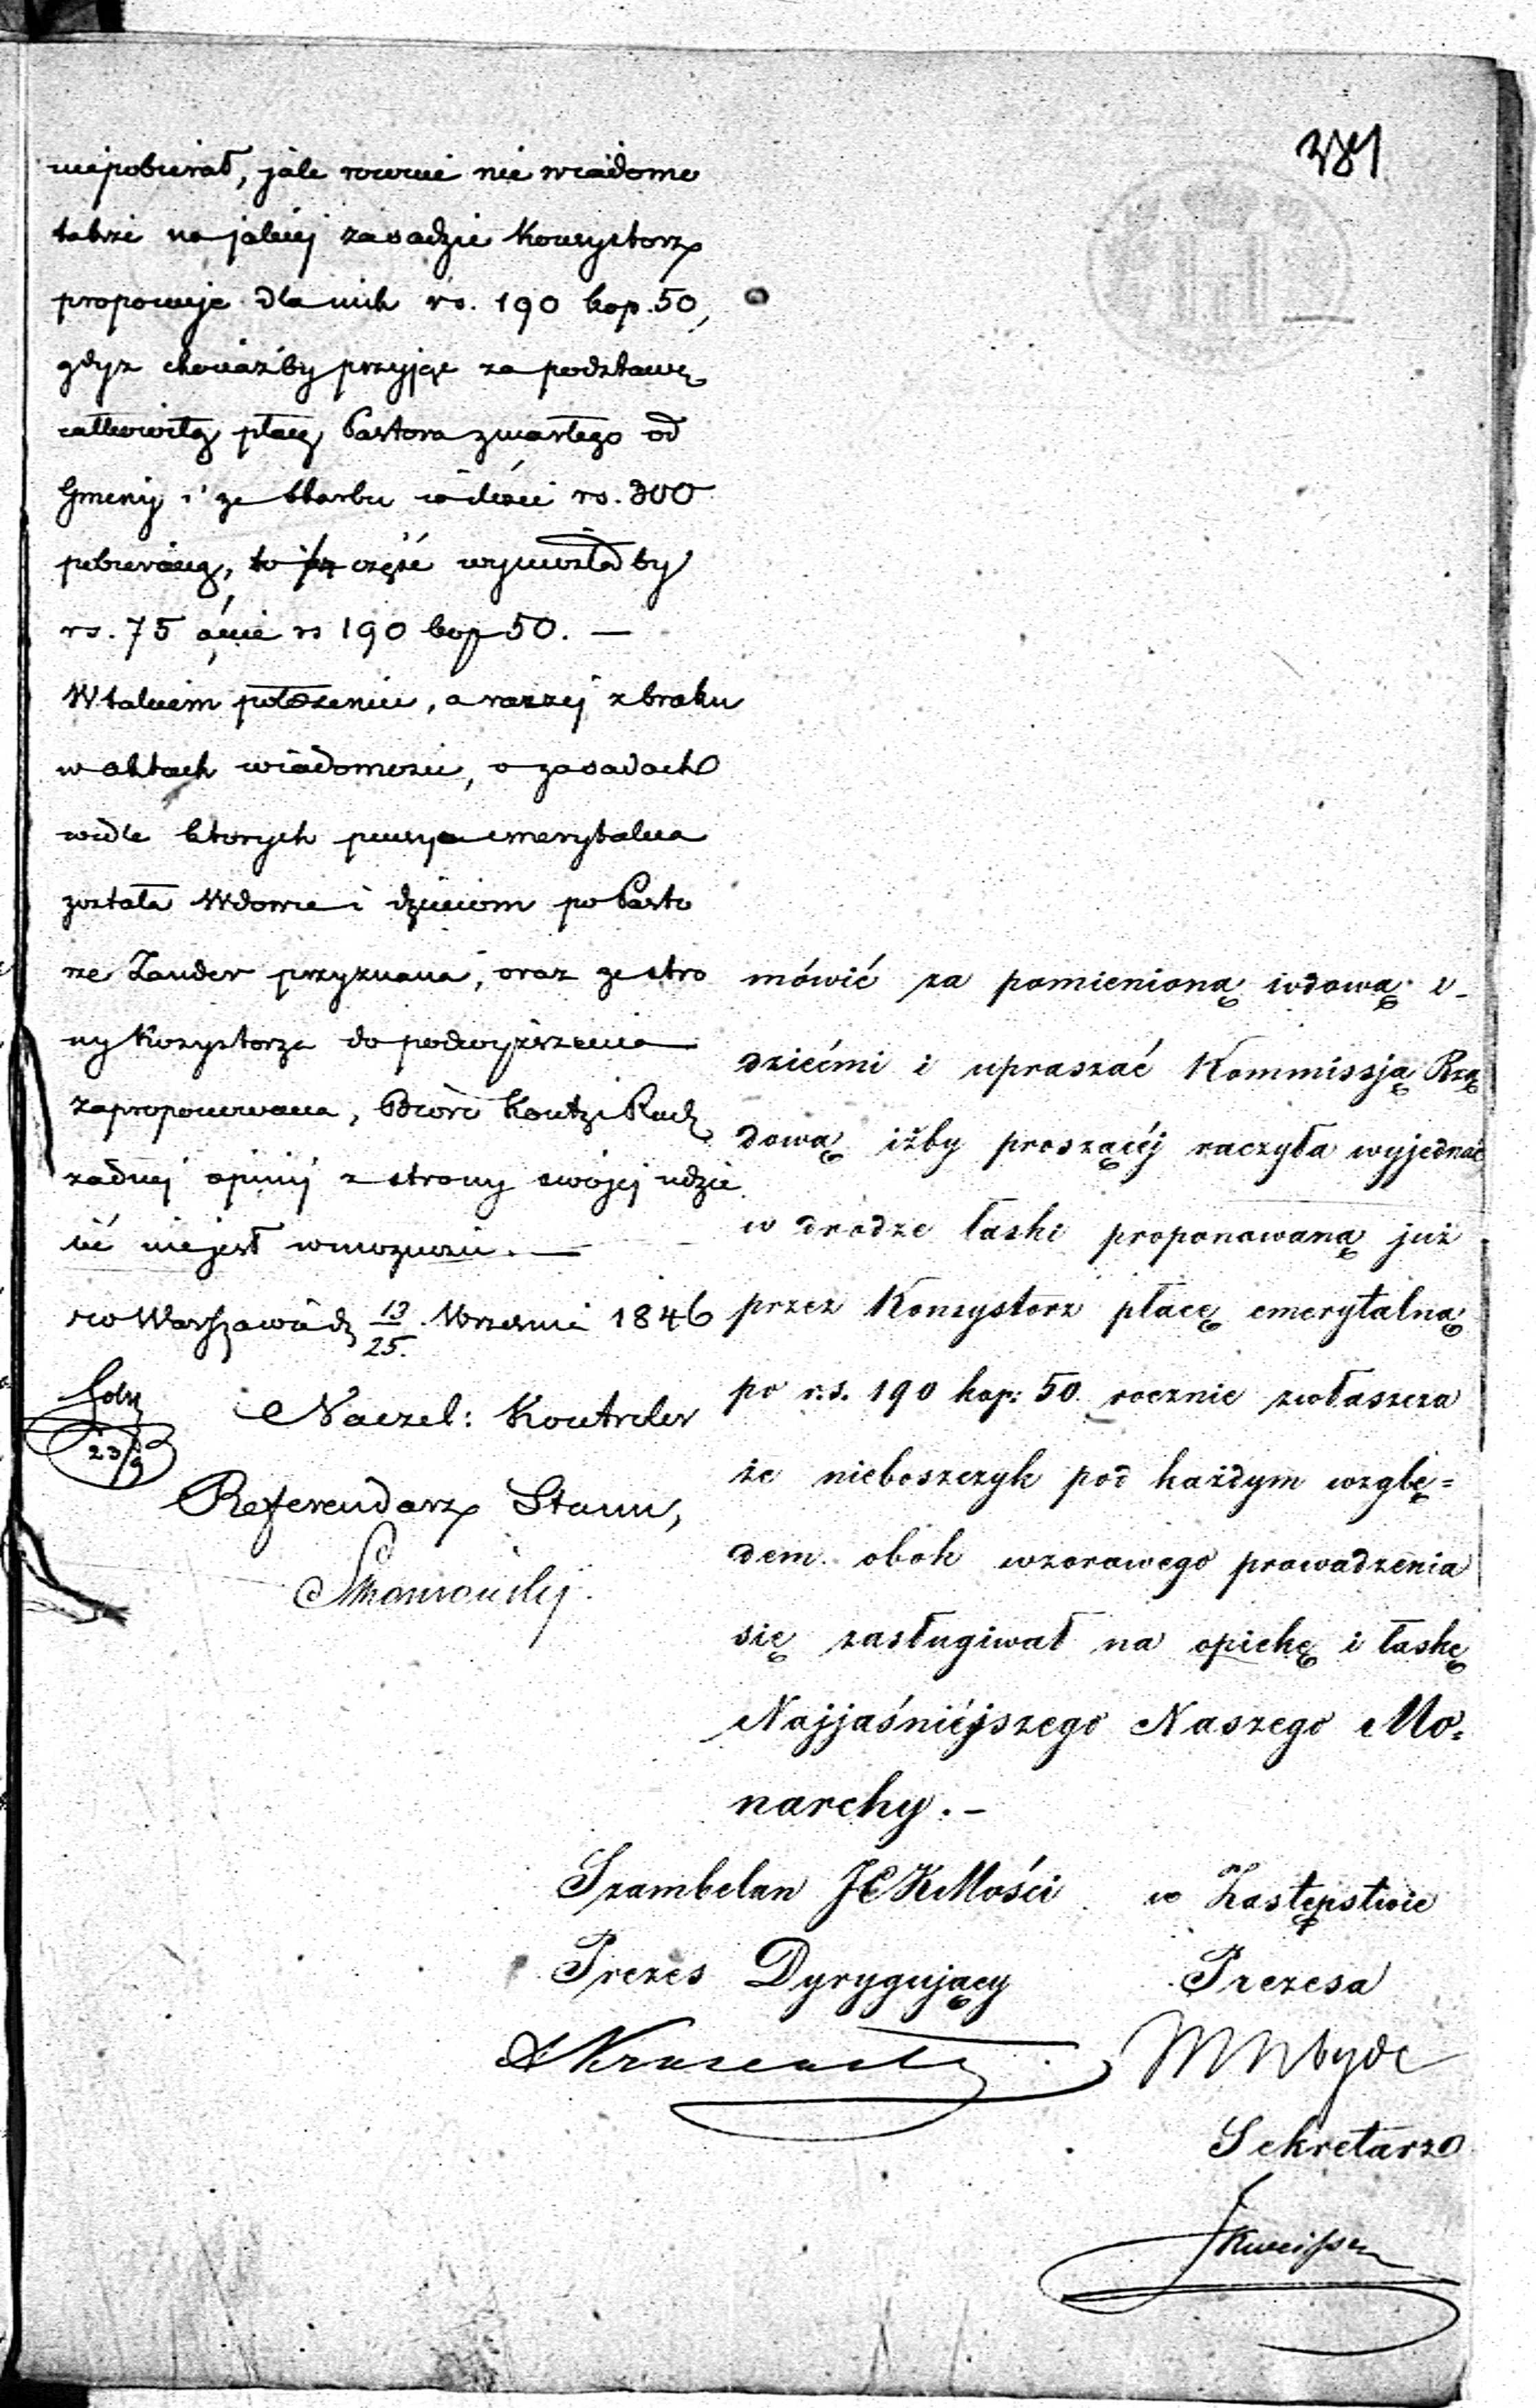 niepobierał, jak rownie nie wiadomo
także na jakiej zasadzie Konsystorz
proponuje dla nich rs. 190 kop. 50,
gdyz chociażby przyjąć za podstawę
całkowitą płacę Pastora zmarłego od
Gminy i ze skarbu w ilości rs. 300
pobieraną, to część wynosiłaby
rs. 75 a nie rs 190 kop 50. —
W takiem położeniu, a raczej z braku
w aktach wiadomości, o zasadach
wedle ktorych pensya emerytalna
została Wdowie i dzieciom po Pasto
rze Zander przyznana, oraz ze stro
ny Kosystorza do podwyższenia
zaproponowana, Bióro Kontr: Rach
żadnej opinij z strony swojej udzie
lić nie jest w możności. —
w Warszawie d. 13/25. Września 1846
23/9
Naczel: Kontroler
Referendarz Stanu,
381
mówić za pomienioną wdową z
dziećmi i upraszać Kommissją Rzą
dową iżby proszącéj raczyła wyjednać
w drodze łaski proponowaną już
przez Konsystorz płacę emerytalną
po r.s. 190 kop: 50. rocznie zwłaszcza
że nieboszczyk pod każdym wzglę=
dem obok wzorowego prowadzenia
się zasługiwał na opiekę i łaskę
Najjaśniéjszego Naszego Mo=
narchy. —
Szambelan JCKMości
Prezes Dyrygujący
w Zastępstwie
Prezesa
Sekretarz